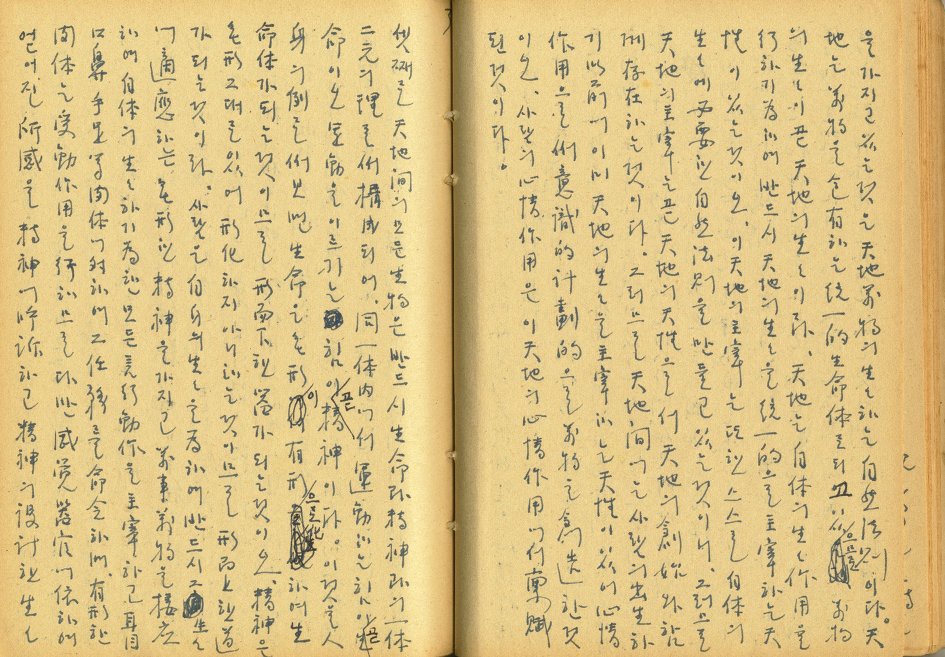 을가지고있는것은天地萬物의生々하는自然法則이다。天
地는萬物을包有하는統一的生命体로되고있으므로萬物
의生々이곧天地의生々이라、天地는自体의生々作用을
行하기為하여반드시天地의生々을統一的으로主宰하는天
性이있는것이오、이天地의主宰는또한스스로自体의
生々에必要한自然法則을만들고있는것이니、그러므로
天地의主宰는곧天地의天性으로서天地의創始와함
께存在하는것이다。그러므로天地間에는사람의出生하
기以前에이미天地의生々을主宰하는天性이있어心情
作用으로써意識的計劃的으로萬物을創造한것
이오、사람의心情作用은이天地의心情作用에서稟賦
된것이다。
셋째는天地間의모든生物은반드시生命과精神과의一体
二元의理로써構成되어、同一体内에서運動하는힘은生
命이오運動을이르키는힘이곧精神이다。이것을人
身의例로써보면生命은無形이有形으로化하여生
命体가되는것이므로形而下한器가되는것이오、精神은
無形그대로있어形化하지아니하는것이므로形而上한道
가되는것이라、사람은自身의生々을為하여반드시그生々
에適應하는無形한精神을가지고萬事萬物을接応
하여自体의生々하기為한모든行動作을主宰하고耳目
口鼻手足等肉体에対하여命令하며有形한
肉体는受動作用을行하므로다만感覚器官에依하여
얻어진所感을精神에呼訴하고精神의設計한生々